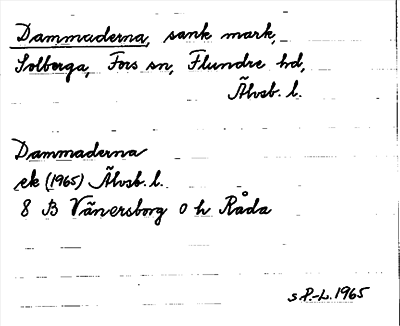 Dammaderna, sank mark,
Solberga, Fors sn, Flundre hd,
Älvsb. l.
Dammaderna
ek (1965) Älvsb. l.
8 B Vänersborg o h Råda
s P.-L. 1965